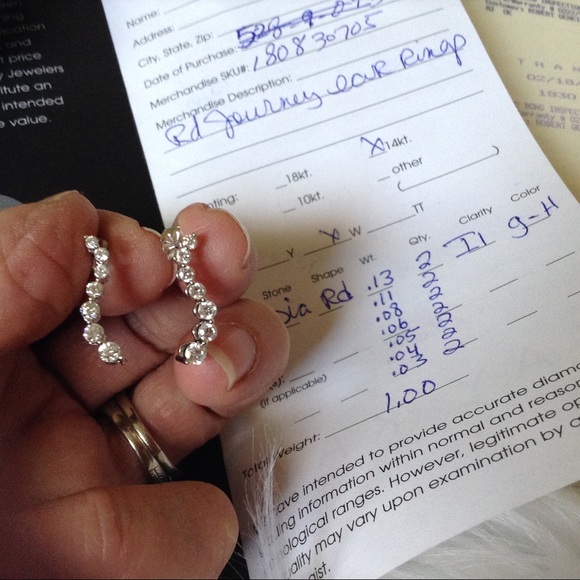 Name:
Address:
City, State, Zip:
Date of Purchase:
Merchandise SKU#: 180830705
Merchandise Description:
Rd Journey ear Rings
X 14kt.
_18kt.
_10kt.
_other
( )
_Y X W _TT
Stone Shape Wt. Qty. Clarity Color
dia Rd .13 2 I1 G-H
.11 2
.08 2
.06 2
.05 2
.04 2
.03 2
(if applicable)
1.00
Total Weight:
ave intended to provide accurate diam
ing information within normal and reaso
ological ranges. However, legitimate op
ality may vary upon examination by a
ist.
cation
and
t price
y Jewelers
titute an
intended
e value.
T H A N
02/18/
1830